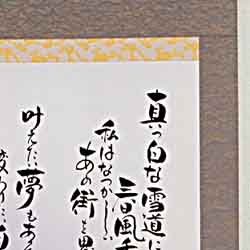 真っ白な雪道に
春風香
私はなつかしい
あの街を思
叶えたい夢もあ
変わりた